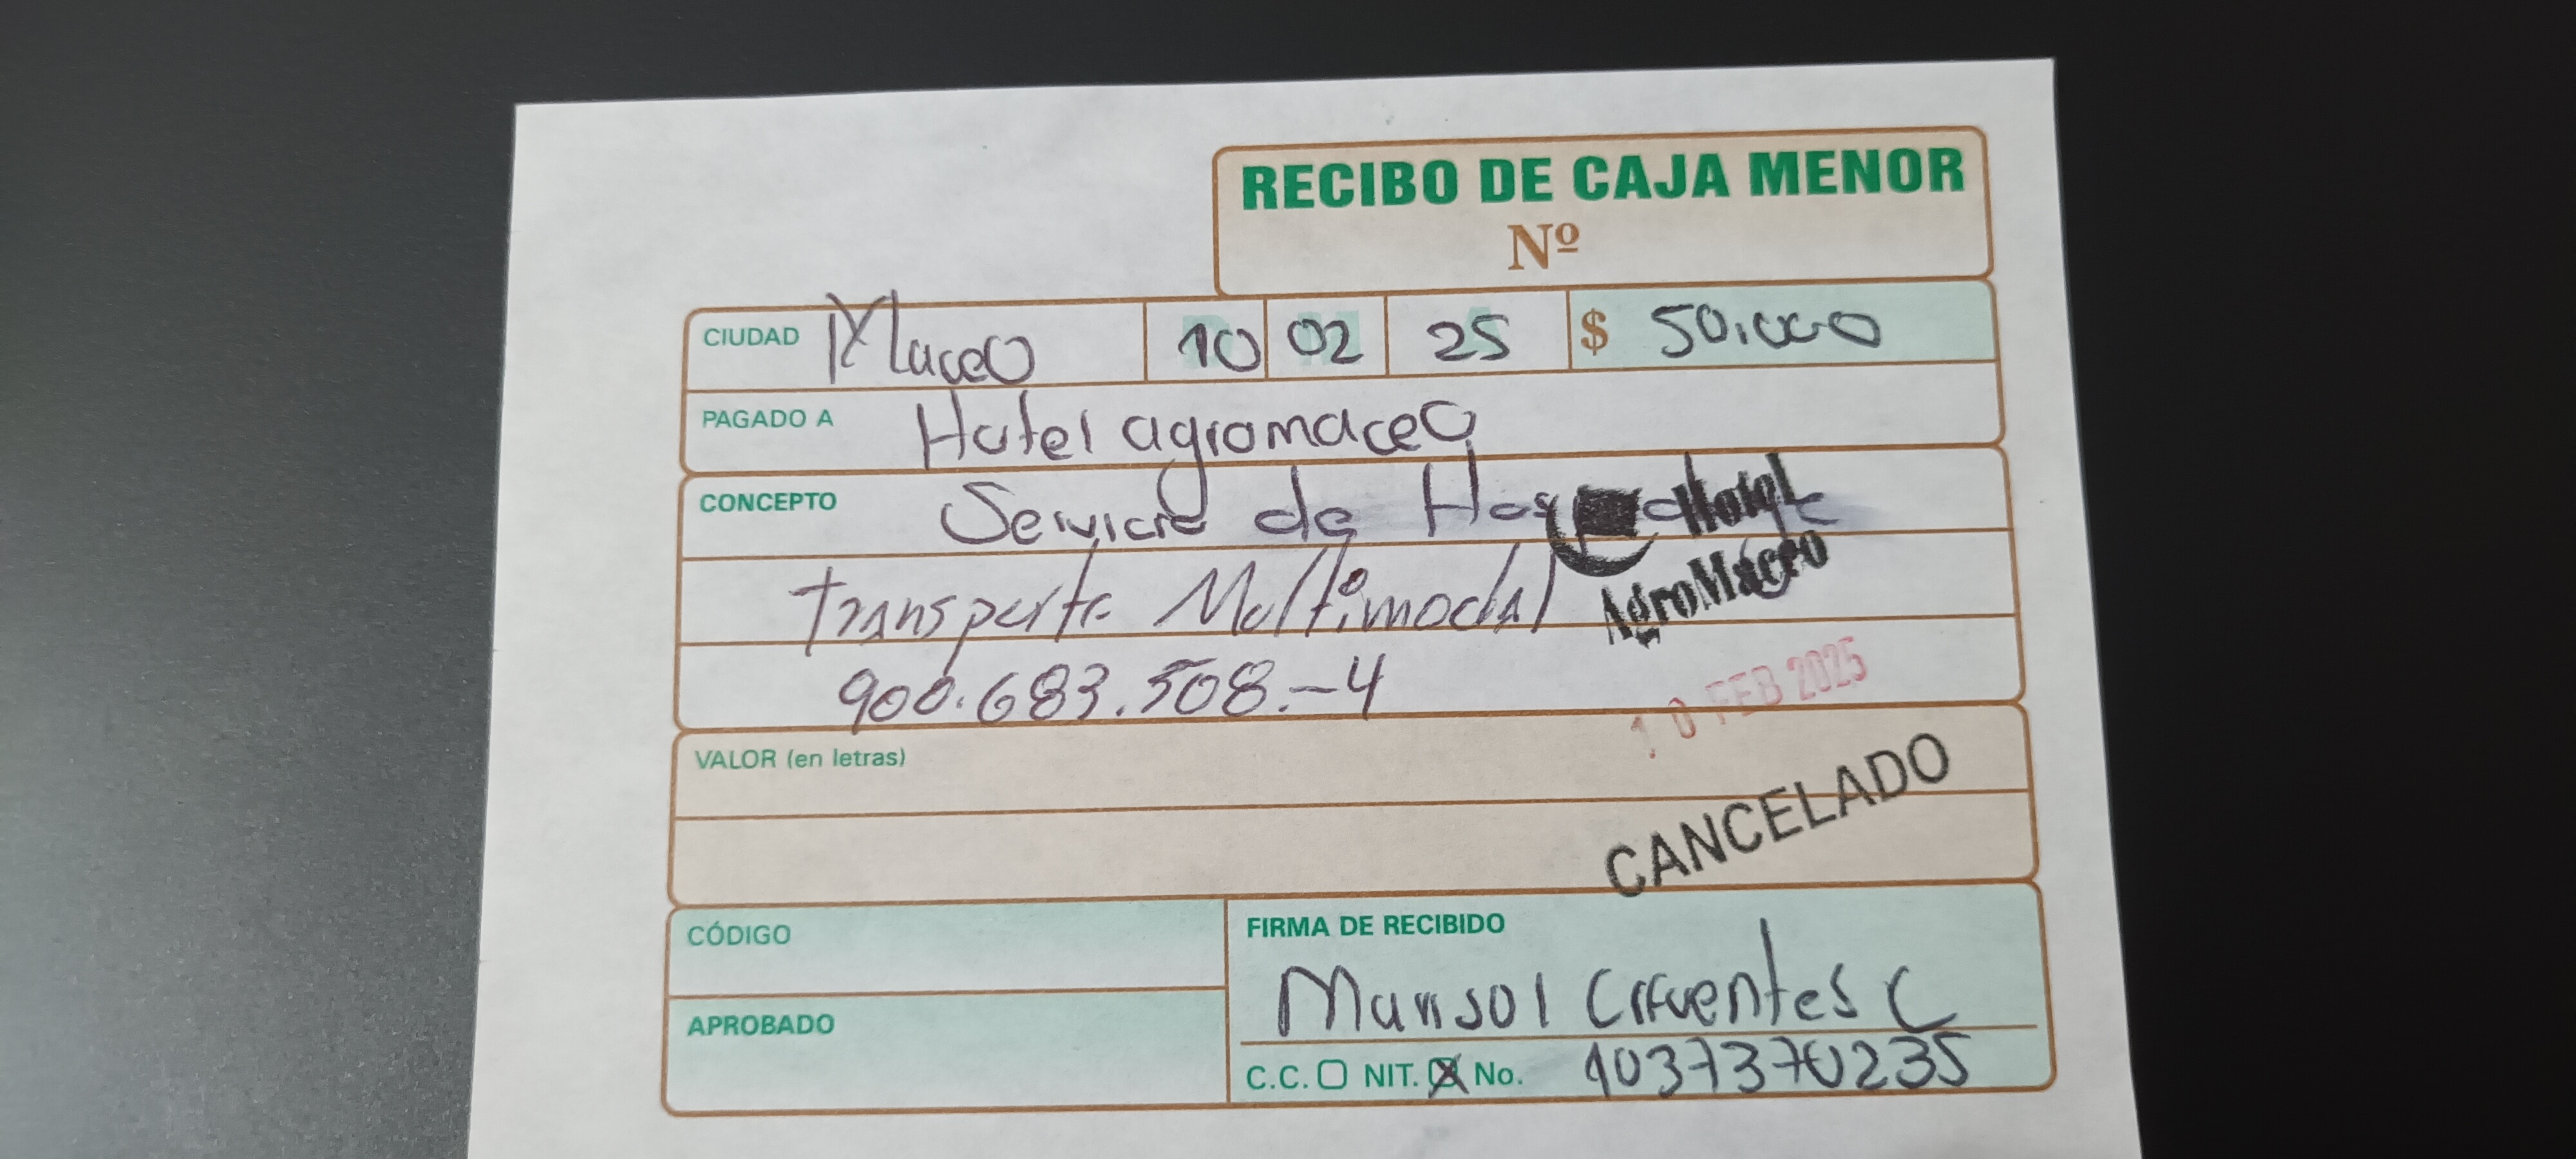 RECIBO DE CAJA MENOR
Nº
CIUDAD Maceo 10 02 25 $ 50.000
PAGADO A Hotel agromaceo
CONCEPTO Servicio de
Hotel
Transporte Multimodal
AgroMaceo
900.683.508.-4
10 FEB 2025
VALOR (en letras)
CANCELADO
CÓDIGO
FIRMA DE RECIBIDO
Marisol Cifuentes C
APROBADO
C.C. NIT. X No. 1037370235